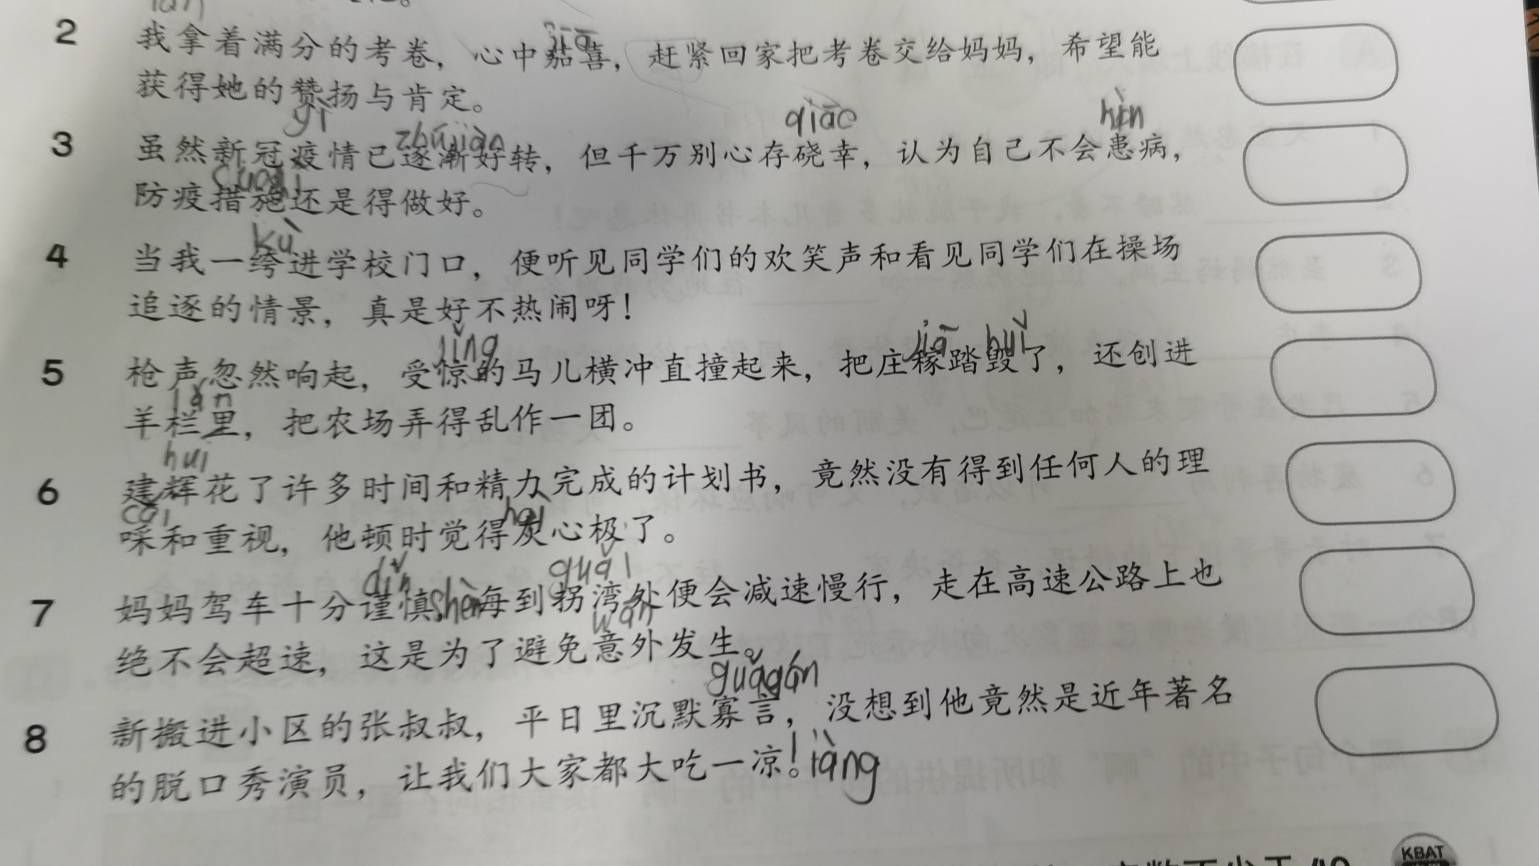 2 我拿着满分的考卷，心中嘉喜，赶紧回家把考卷交给妈妈，希望能
jiā
获得她的赞扬与肯定。
yì zhújiàn qiāo hàn
3 虽然新冠疫情已逐渐好转，但千万别心存硗幸，认为自己不会患病，
防疫措施还是得做好。
kù
4 当我一绔进学校门口，便听见同学们的欢笑声和看见同学们在操场
追逐的情景，真是好不热闹呀！
jīng jiā huǐ
5 枪声忽然响起，受惊的马儿横冲直撞起来，把庄稼踏毁了，还创进
lán
羊栏里，把农场弄得乱作一团。
hui
6 建辉花了许多时间和精力完成的计划书，竟然没有得到任何人的理
cǎi hai
啋和重视，他顿时觉得灰心极了。
shèn guǎi
7 妈妈驾车十分谨慎，每到拐湾处便会减速慢行，走在高速公路上也
wān
绝不会超速，这是为了避免意外发生。
guǎgán
8 新搬进小区的张叔叔，平日里沉默寡言，没想到他竟然是近年著名
的脱口秀演员，让我们大家都大吃一凉。liàng
KBAT